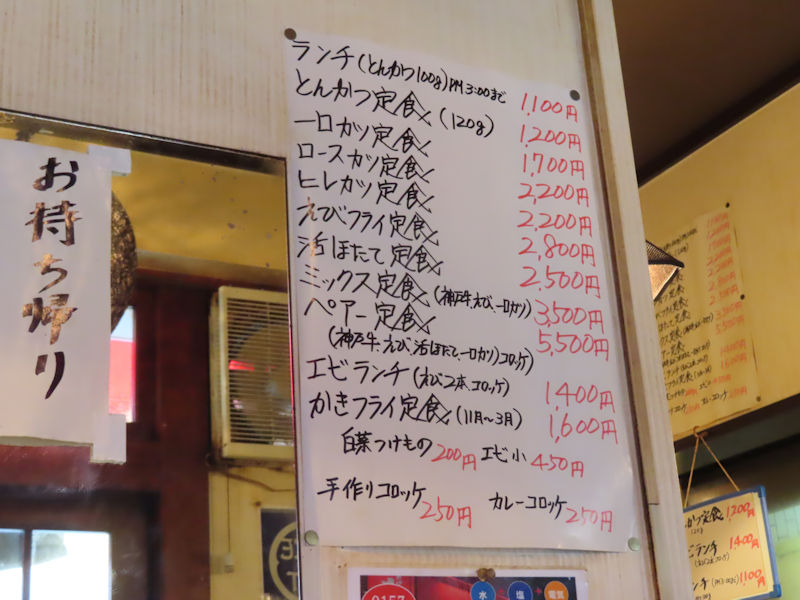 お持ち帰り
ランチ(とんかつ100g)PM3:00まで 1,100円
とんかつ定食(120g) 1,200円
一口カツ定食 1,700円
ロースカツ定食 2,200円
ヒレカツ定食 2,200円
えびフライ定食 2,800円
活ほたて定食 2,500円
ミックス定食(神戸牛、えび、一口カツ) 3,500円
ペアー定食 5,500円
(神戸牛、えび、活ほたて、一口カツ、コロッケ)
エビランチ(えび2本、コロッケ) 1,400円
かきフライ定食(11月〜3月) 1,600円
白菜つけもの 200円 エビ小 450円
手作りコロッケ 250円 カレーコロッケ 250円
0157
水
塩
電気
かつ定食 1,200円
120g
ビランチ 1,400円
ンチ 1,100円